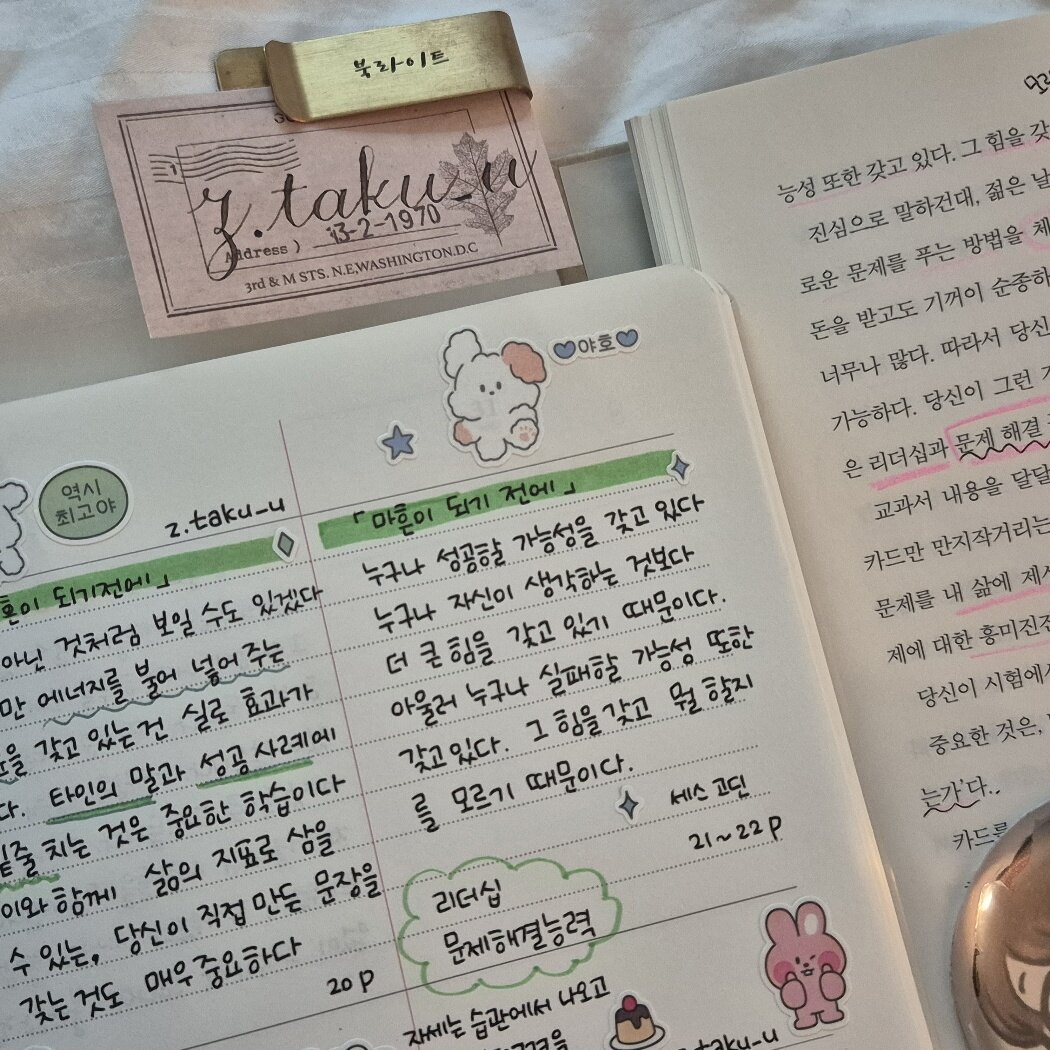 북라이트
z.taku_u
Address )
13-2-1970
3rd & M STS. N.E,WASHINGTON.D.C
야호
역시
최고야
z.taku_u
되기전에」
아닌 것처럼 보일 수도 있겠다
만 에너지를 불어 넣어 주는
갖고 있는건 실로 효과가
다. 타인의 말과 성공 사례에
밑줄 치는 것은 중요한 학습이다
이와 함께 삶의 지표로 삼을
수 있는, 당신이 직접 만든 문장을
갖는것도 매우중요하다
20p
「마흔이 되기 전에」
누구나 성공할 가능성을 갖고 있다
누구나 자신이 생각하는 것보다
더 큰 힘을 갖고 있기 때문이다.
아울러 누구나 실패할 가능성 또한
갖고있다. 그 힘을갖고 뭘 할지
를 모르기 때문이다.
세스 고딘
21~22p
리더십
문제해결능력
자세는 습관에서 나오고
taku_u
능성 또한 갖고 있다. 그 힘을 갖
진심으로 말하건대, 젊은 날
로운 문제를 푸는 방법을
돈을 받고도 기꺼이 순종하
너무나 많다. 따라서 당신
가능하다. 당신이 그런
은 리더십과 문제 해결
교과서 내용을 달달
카드만 만지작거리는
문제를 내 삶에 제시
제에 대한 흥미진진
당신이 시험에서
중요한 것은,
는가'다.
카드